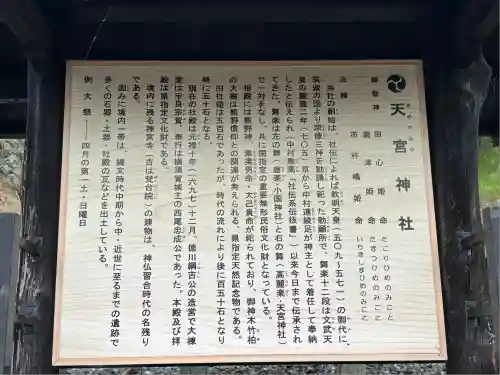 天宮神社
あめのみや
御祭神
田心姫命 たごりひめのみこと
湍津姫命 たぎつひめのみこと
市杵嶋姫命 いちきしまひめのみこと
由緒
当社の創始は、社伝によれば欽明天皇(五〇九〜五七一)の御代に、
筑紫の国より宗像三神を勧請し祀った勅願所で、舞楽十二段は文武天
皇の慶雲二年(七〇五)京から中村連綾足が神主として着任して奉納
したと伝えられ(中村乗高『社伝系伝抜書』)以来今日まで伝承され
てきた。舞楽は左の舞(唐楽・小国神社)と右の舞(高麗楽・天宮神社)
で一対をなし、共に国指定の重要無形民俗文化財となっている。
相殿には熊野神、素濔男命・大己貴命が祀られており、御神木竹柏
の大樹は熊野信仰との関連が考えられる。県指定天然記念物である。
旧社領は五百石であったが、時代の流れにより後に百五十石となり
終に五十石となる。
現在の社殿は元禄十年(一六九七)十二月、徳川綱吉公の造営で大棟
梁は甲良宗賀、奉行は横須賀城主の西尾忠成公であった。本殿及び拝
殿は県指定文化財である。
境内に残る神宮寺(古は梵台院)の建物は、神仏習合時代の名残り
である。
因みに境内一帯は、縄文時代中期から中・近世に至るまでの遺跡で
多くの石器・土器・社殿の瓦などを出土している。
例大祭——四月の第一土・日曜日